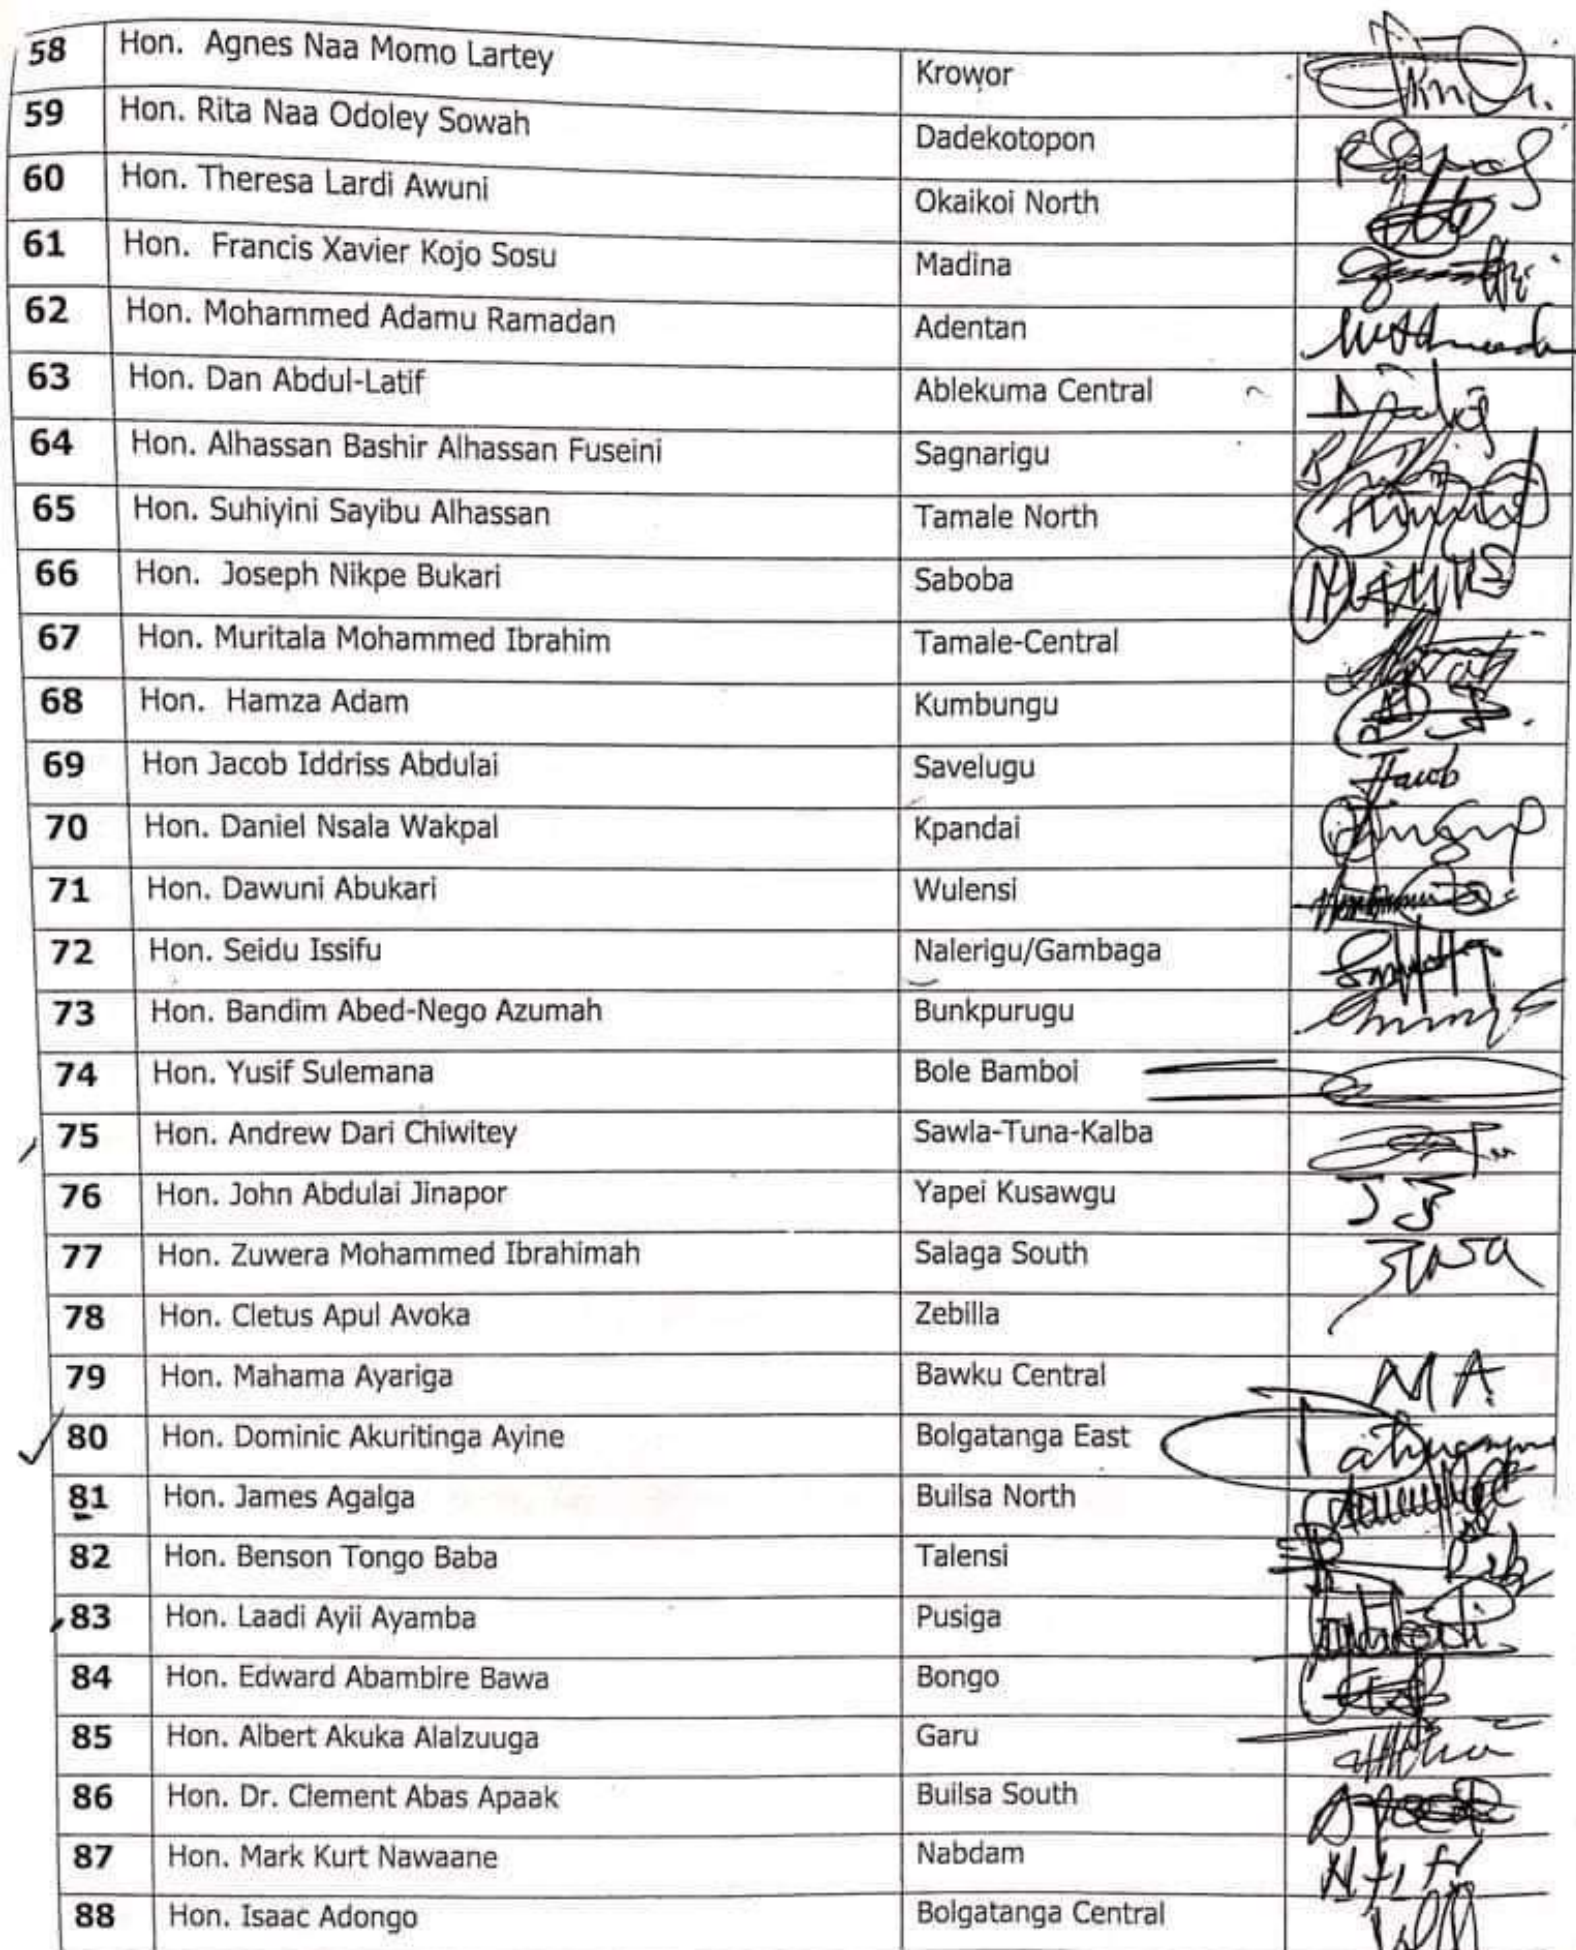 58 Hon. Agnes Naa Momo Lartey Krowor
59 Hon. Rita Naa Odoley Sowah Dadekotopon
60 Hon. Theresa Lardi Awuni Okaikoi North
61 Hon. Francis Xavier Kojo Sosu Madina
62 Hon. Mohammed Adamu Ramadan Adentan
63 Hon. Dan Abdul-Latif Ablekuma Central
64 Hon. Alhassan Bashir Alhassan Fuseini Sagnarigu
65 Hon. Suhiyini Sayibu Alhassan Tamale North
66 Hon. Joseph Nikpe Bukari Saboba
67 Hon. Muritala Mohammed Ibrahim Tamale-Central
68 Hon. Hamza Adam Kumbungu
69 Hon Jacob Iddriss Abdulai Savelugu Jacob
70 Hon. Daniel Nsala Wakpal Kpandai
71 Hon. Dawuni Abukari Wulensi
72 Hon. Seidu Issifu Nalerigu/Gambaga
73 Hon. Bandim Abed-Nego Azumah Bunkpurugu
74 Hon. Yusif Sulemana Bole Bamboi
75 Hon. Andrew Dari Chiwitey Sawla-Tuna-Kalba
76 Hon. John Abdulai Jinapor Yapei Kusawgu JJ
77 Hon. Zuwera Mohammed Ibrahimah Salaga South
78 Hon. Cletus Apul Avoka Zebilla
79 Hon. Mahama Ayariga Bawku Central MA
80 Hon. Dominic Akuritinga Ayine Bolgatanga East
81 Hon. James Agalga Builsa North
82 Hon. Benson Tongo Baba Talensi
83 Hon. Laadi Ayii Ayamba Pusiga
84 Hon. Edward Abambire Bawa Bongo
85 Hon. Albert Akuka Alalzuuga Garu
86 Hon. Dr. Clement Abas Apaak Builsa South
87 Hon. Mark Kurt Nawaane Nabdam
88 Hon. Isaac Adongo Bolgatanga Central